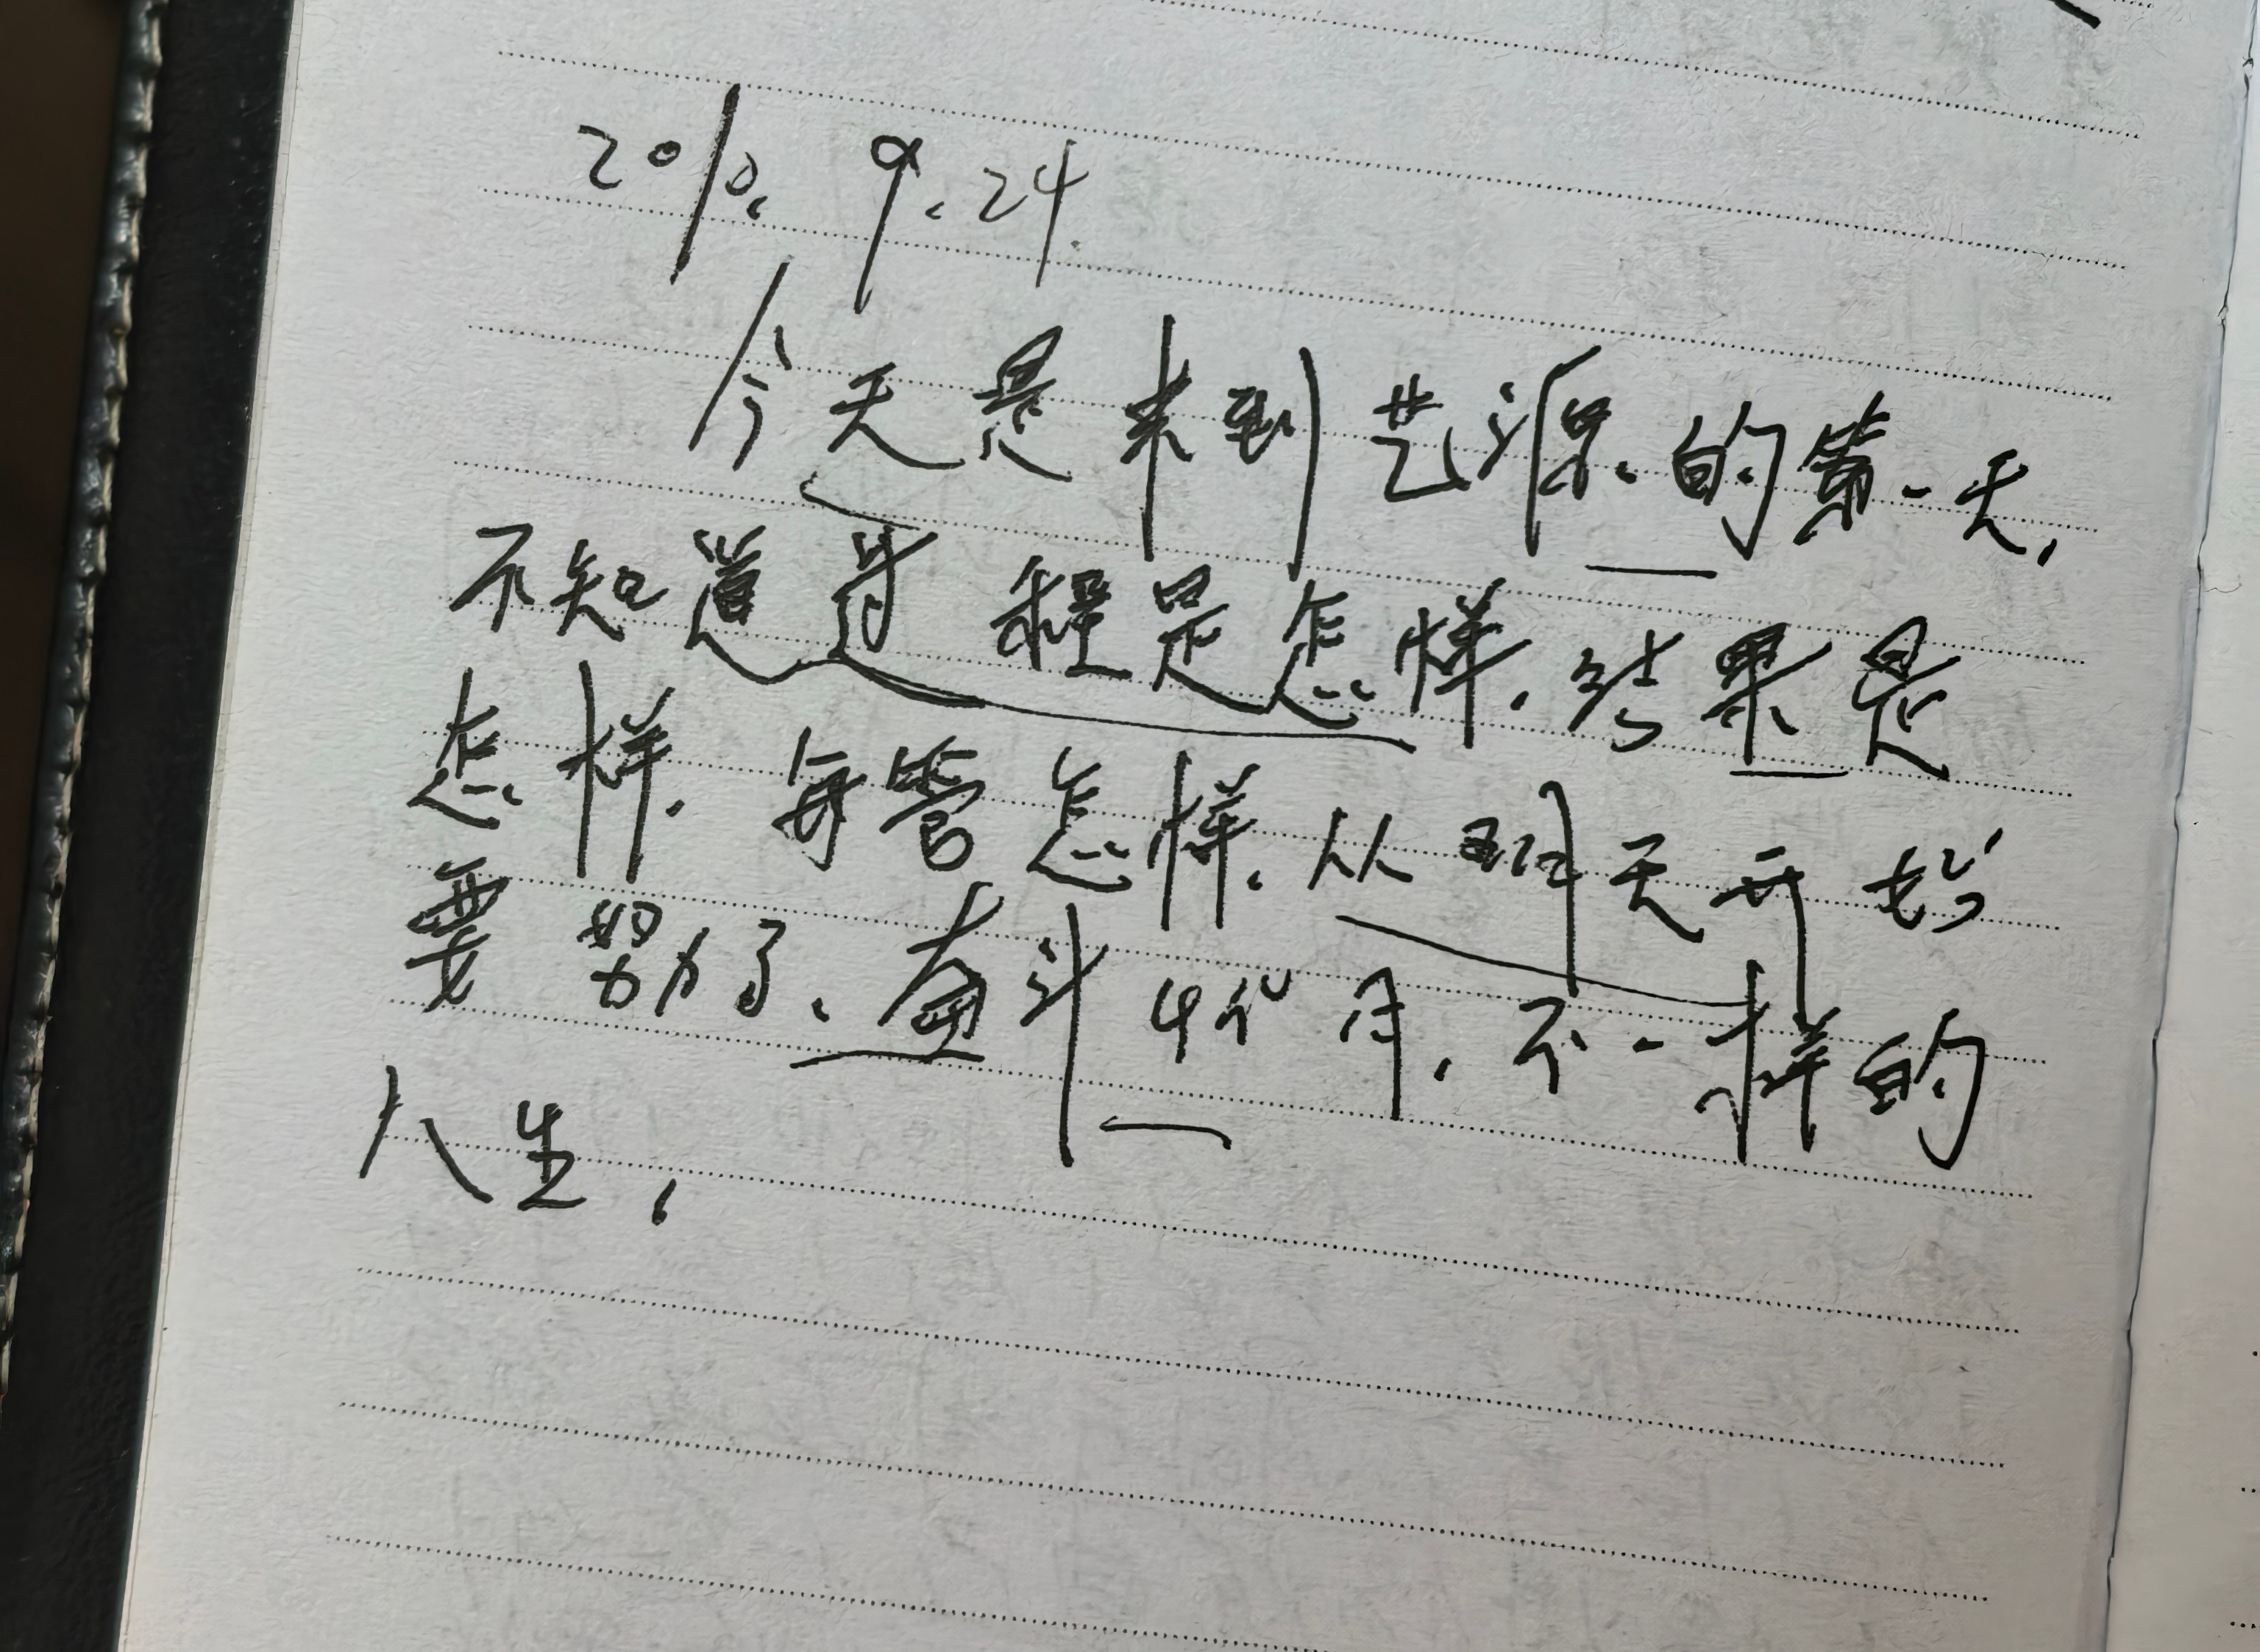 9.24
今天是来到艺源的第一天,
不知道过程是怎样,结果是
怎样,每管怎样,从明天开始
要努力了,奋斗4个月,不一样的
人生,